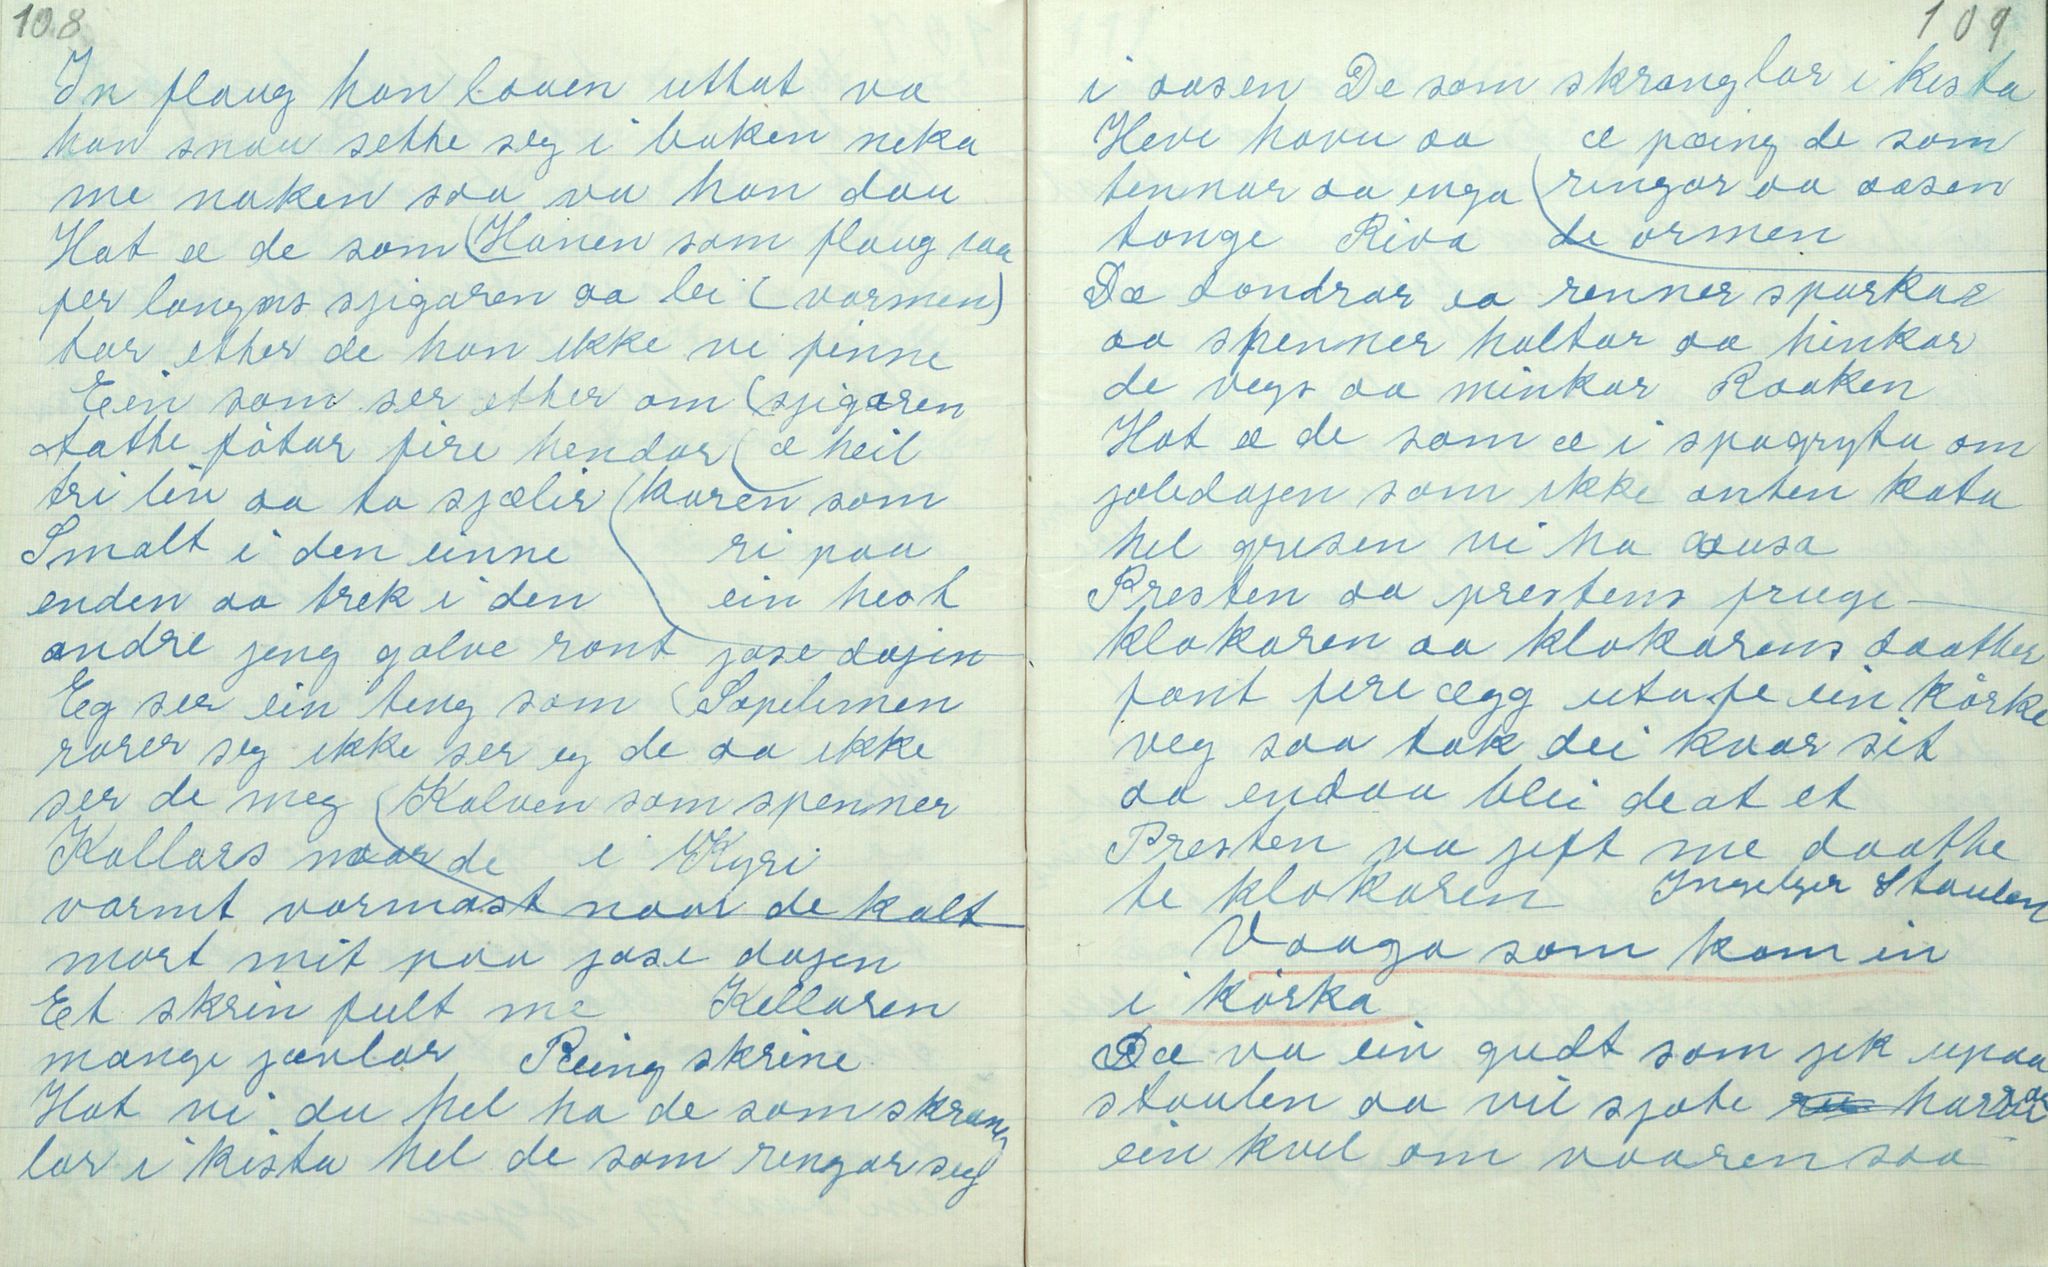 108
In flaug han laaen uttat va
han snau sette seg i baken neka
me naken saa va han dau
Hat æ de som (Hanen som flaug
fer langns sjigaren aa lei (varmen)
tar etter de han ikke vi finne
Ein som ser etter om (sjigaren
Aatte fötar fire hendar (æ heil
tri lin aa to sjælir (karen som
Smalt i den einne ri paa
enden aa trek i den ein hest
andre jeng galve ront jase dajen
Eg ser ein teng som (Sopelimen
rører seg ikke ser eg de aa ikke
ser de meg (Kalven som spenner
Kallars naar de i Kyri
varmt varmast naar de kalt
mørt mit paa jase dajen
Et skrin fult me Kellaren
mange javlar Peing skrine
Hat vi du hel ha de som skrang
lar i kista hel de som rengar seg
109
i aasen De som skranglar i kista
Heve havu aa æ pæing de som
tennar aa enga (rengar aa aasen
tonge Riva de ormen
Dæ dondrar aa renner sparkar
aa spenner haltar aa hinkar
de vegs aa minkar Raaken
Hat æ de som æ i spagryta om
joledajen som ikke anten kata
hel gresen vi ha ausa
Presten aa prestens fruge
klokaren aa klokarens daatter
fant fire ægg uta fe ein körke
veg saa tok dei kvar sit
aa endaa blei deat et
Presten va jeft me daatte
te klokaren Ingelger Staulen
Vaaga som kom in
i körka
Dæ va ein gudt som jek upaa
staulen aa vil sjote harrar
ein kvel om vaaren saa